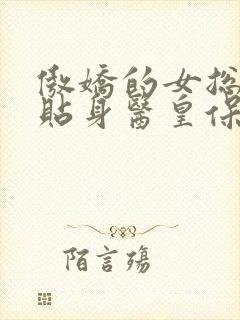 傲嬌的女揔
貼身醫皇保
陌言殤